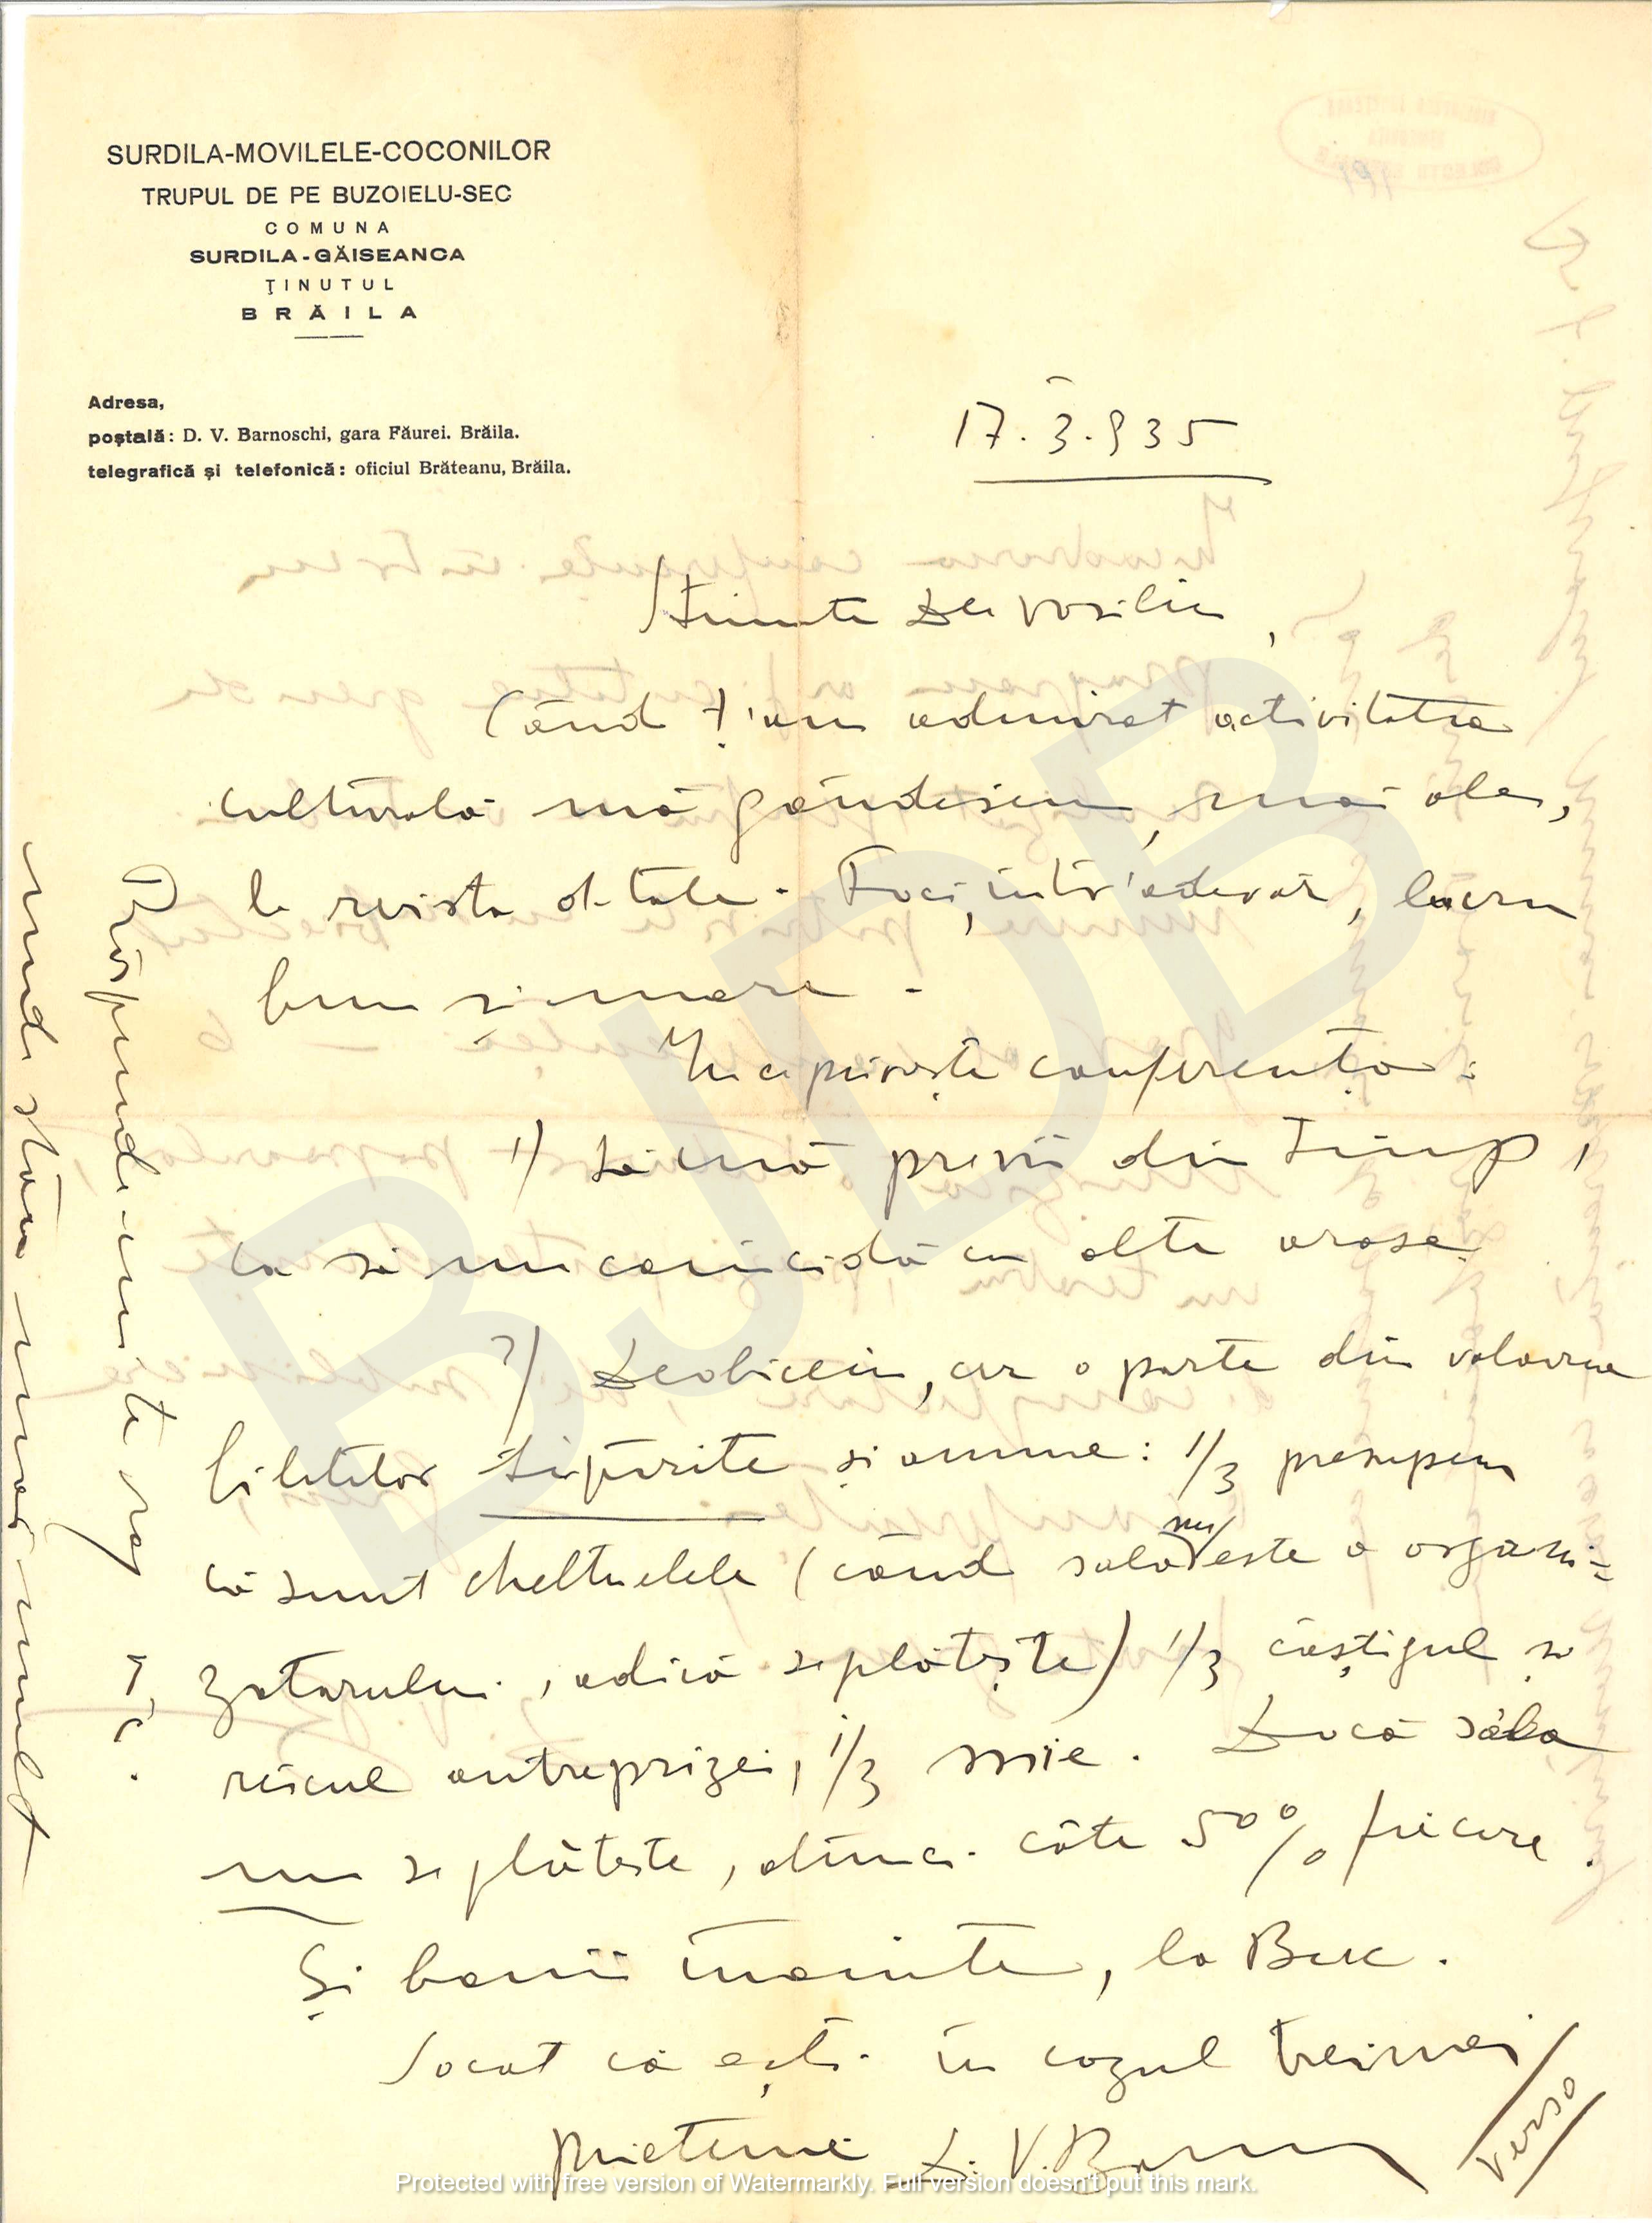 SURDILA-MOVILELE-COCONILOR
TRUPUL DE PE BUZOIELU-SEC
COMUNA
SURDILA-GĂISEANCA
ŢINUTUL
BRĂILA
Adresa,
poştală: D. V. Barnoschi, gara Făurei. Brăila.
telegrafică şi telefonică: oficiul Brăteanu, Brăila.
17.3.935
Stimate Dle Vasiliu,
Când ţi'am admirat activitatea
culturală mă gândeam, mai ales,
la revista d-tale. Faci, într'adevăr, lucru
bun şi mare.
In ce priveşte conferenţa:
1) Să mă previi din timp,
ca să nu coincidă cu alte oraşe.
2) Deobiceiu, cer o parte din valoarea
biletelor tipărite şi anume: 1/3 presupun
că sunt cheltuelele (când sala nu este a organi=
zatorului, adică se plăteşte) 1/3 câştigul şi
riscul antreprizei, 1/3 mie. Dacă sala
nu se plăteşte, atunci câte 50% fiecare.
Şi banii înainte, la Buc.
Socot că eşti în cazul treimei
Prietenie D. V. Barnoschi
Verso
Răspunde-mi te rog
unde stau mai mult
BJDB
Protected with free version of Watermarkly. Full version doesn't put this mark.